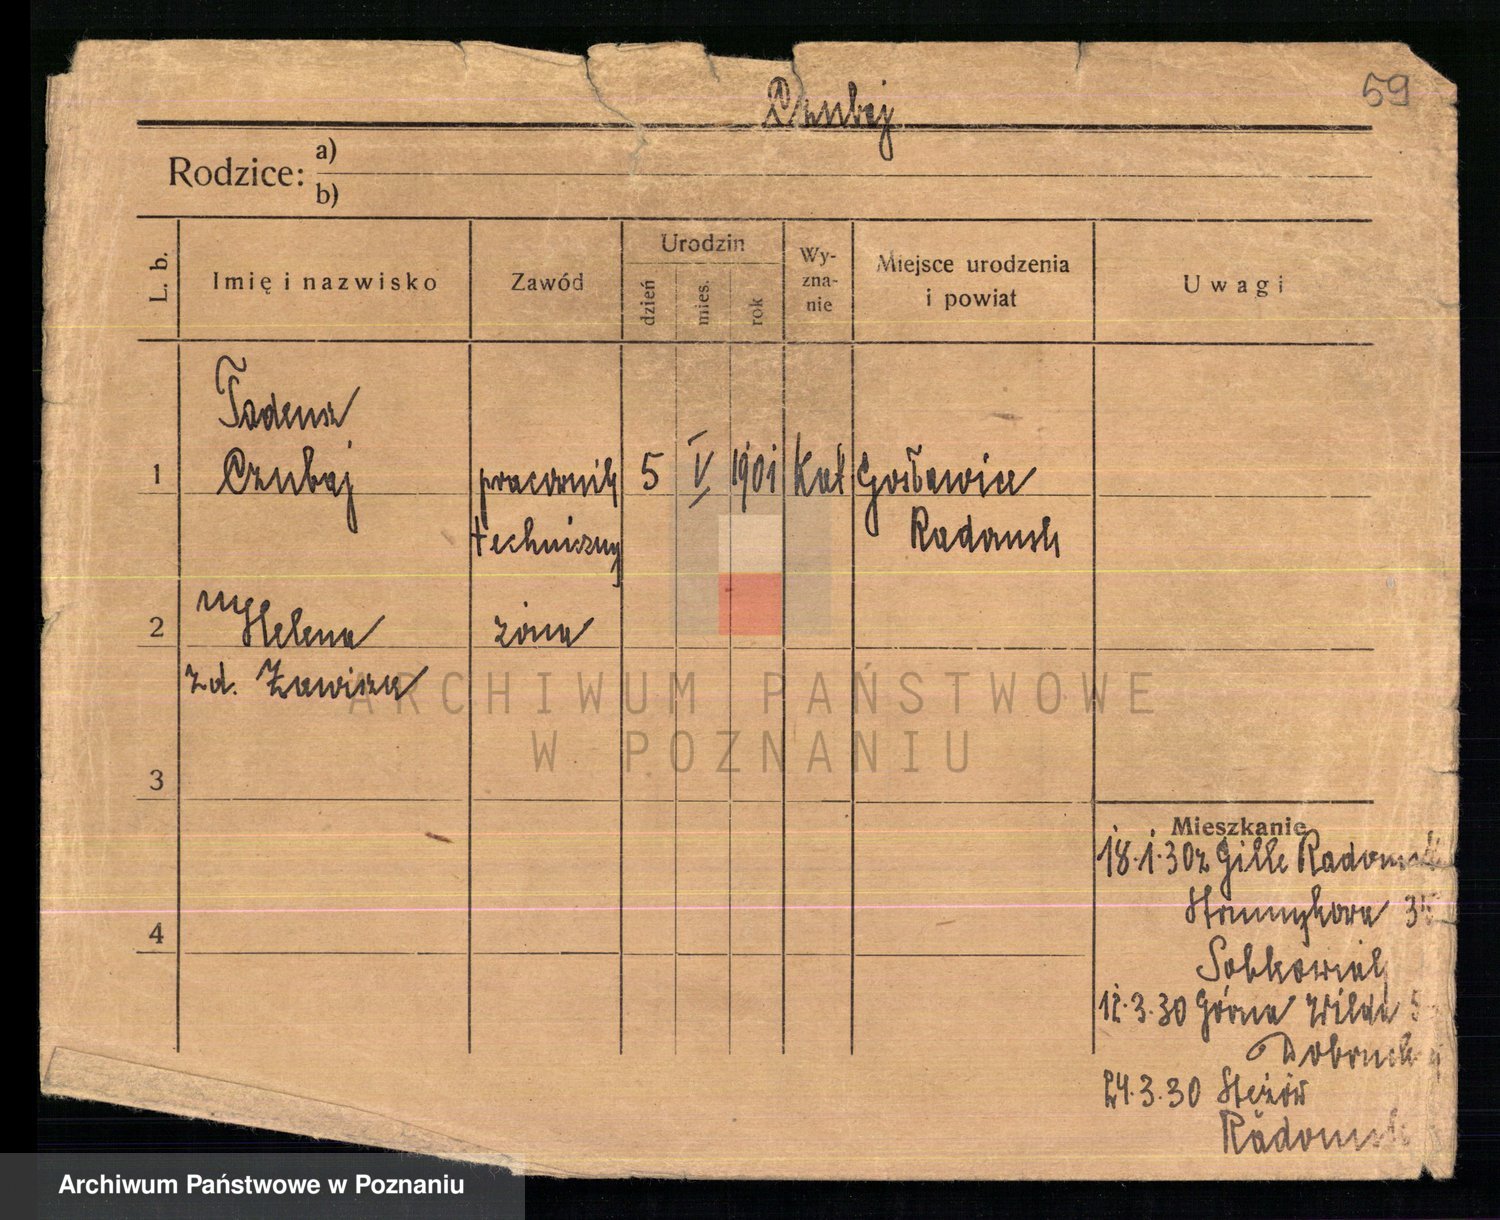 59
Czubaj
Rodzice: a)
b)
L. b.
Imię i nazwisko
Zawód
Urodzin
dzień
mies.
rok
Wy-
zna-
nie
Miejsce urodzenia
i powiat
Uwagi
Tadeusz
1 Czubaj pracownik 5 V 1901 Kat Gosławice
techniczny Radomsk
2 Helena żona
z d. Zawisza
ARCHIWUM PAŃSTWOWE
W POZNANIU
3
4
Mieszkanie
18.1.30 z Gille Radomsk
35
Sobkowiak
12.3.30 Górna Wilda 5
24.3.30
Radomsk
Archiwum Państwowe w Poznaniu